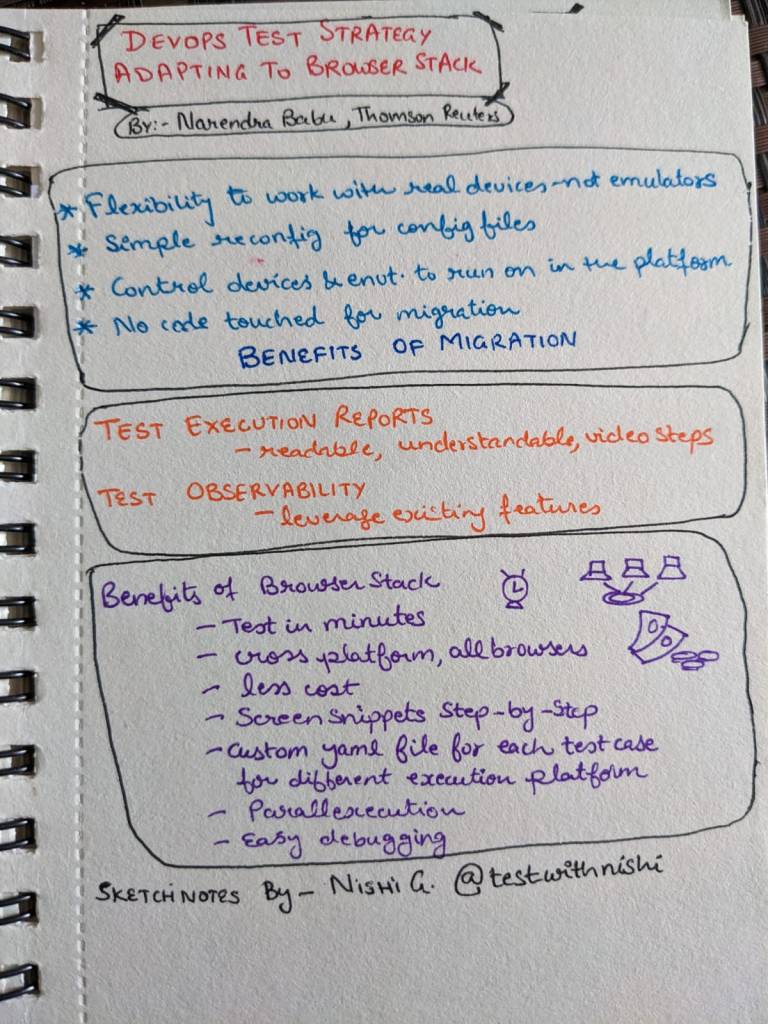 DEVOPS TEST STRATEGY
ADAPTING TO BROWSER STACK
By:- Narendra Babu, Thomson Reuters
* Flexibility to work with real devices - not emulators
* Simple reconfig for config files
* Control devices & envt. to run on in the platform
* No code touched for migration
BENEFITS OF MIGRATION
TEST EXECUTION REPORTS
- readable, understandable, video steps
TEST OBSERVABILITY
- leverage existing features
Benefits of Browser Stack
- Test in minutes
- cross platform, all browsers
- less cost
- Screen snippets Step-by-Step
- Custom yaml file for each test case
for different execution platform
- Parallexecution
- Easy debugging
SKETCHNOTES By - NISHI G. @testwithnishi